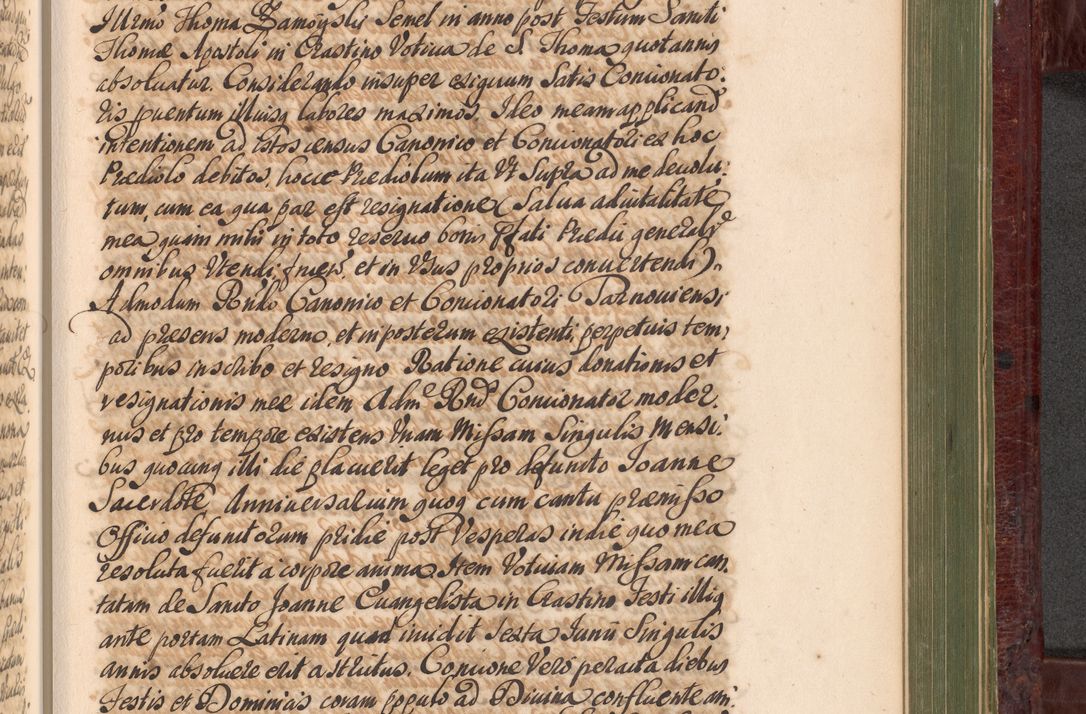 Illrmo Thoma Zamoyski Semel in anno post Festum Sancti
Thomæ Apostoli in Crastino Votiua de S. Thoma quotannis
absoluatur. Considerando insuper exiguum satis Concionato:
ris prouentum illiusq labores maximos, Ideo meam applicand
intentionem ad istos census Canonico et Concionatori ex hoc
Prædiolo debitos, hocce Prædiolum ita Vt Supra ad me deuolu:
tum, cum ea qua par est resignatione (Salua aduitalitate
mea, quam mihi in toto reseruo bonis Pfati Prædii generalr
omnibus Vtendi, frueñ, et in Vsus proprios conuertendi).
Admodum Rndo Canonico et Concionatori Tarnouiensi
ad præsens moderno, et in posterum existenti, perpetuis tem,
poribus inscribo et resigno Ratione cuius donationis et
resignationis meæ idem Adm Rnd Concionator moder,
nus et pro tempore existens Vnam Missam Singulis Mensi:
bus quocunq illi die placuerit leget pro defuncto Joanne
Sacerdote, Anniuersarium quoq cum cantu præmisso
Officio defunctorum pridie post Vesperas in die quo mea
resoluta fuerit a corpore anima Item Votiuam Missam can,
tatam de Sancto Joanne Euangelista in Crastino Festi illiq
ante portam Latinam quod inuidit sexta Junii Singulis
annis absoluere erit astrictus. Concione Vero peracta diebus
Festis et Dominicis coram populo ad Diuina confluente an: